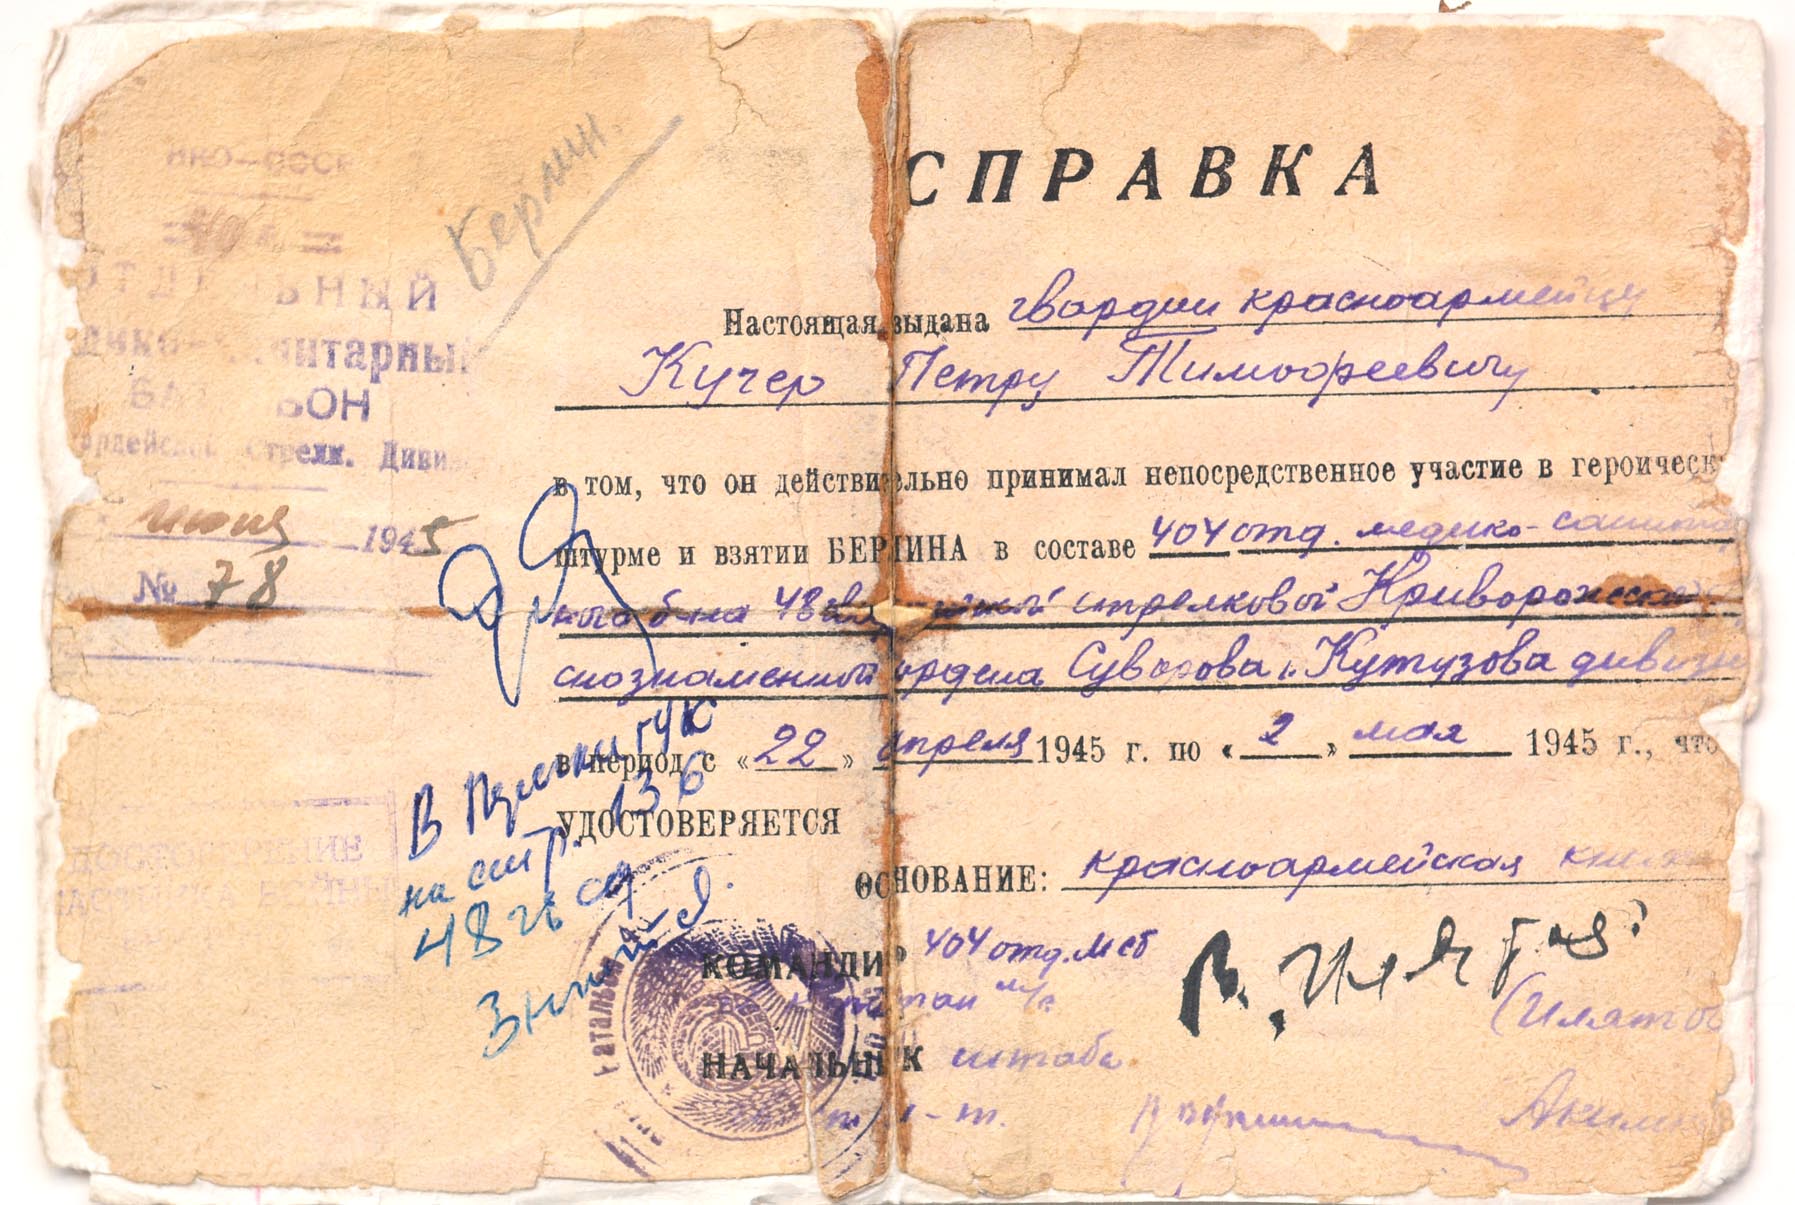 НКО–СССР
ОТДЕЛЬНЫЙ
дико-санитарный
БАТ ЬОН
ардейской Стрелк. Дивиз
июня 1945
№ 78
Берлин.
СПРАВКА
Настоящая выдана гвардии красноармейцу
Кучер Петру Тимофеевичу
в том, что он действительно принимал непосредственное участие в героическ
штурме и взятии БЕРЛИНА в составе 404 отд. медико-санитар
ного б-на 48 стрелковой Криворожской
снознаменной ордена Суворова и Кутузова дивизи
в период с «22» апреля 1945 г. по «2» мая 1945 г., что
УДОСТОВЕРЯЕТСЯ
ОСНОВАНИЕ: красноармейская книжка
КОМАНДИР 404 отд. мсб
капитан м/с
(Илятов
НАЧАЛЬНИК штаба
на стр. 136
48 гв сд
УДОСТОВЕРЕНИЕ
УЧАСТНИКА ВОЙНЫ